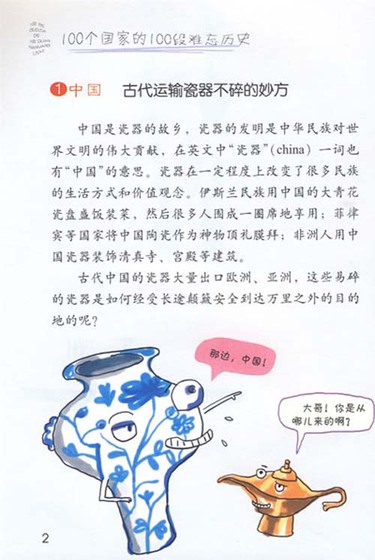 100个国家的100段难忘历史
1 中国 古代运输瓷器不碎的妙方
中国是瓷器的故乡，瓷器的发明是中华民族对世
界文明的伟大贡献，在英文中“瓷器”(china) 一词也
有“中国”的意思。瓷器在一定程度上改变了很多民族
的生活方式和价值观念。伊斯兰民族用中国的大青花
瓷盘盛饭装菜，然后很多人围成一圈席地享用；菲律
宾等国家将中国陶瓷作为神物顶礼膜拜；非洲人用中
国瓷器装饰清真寺、宫殿等建筑。
古代中国的瓷器大量出口欧洲、亚洲，这些易碎
的瓷器是如何经受长途颠簸安全到达万里之外的目的
地的呢？
那边，中国！
大哥！你是从
哪儿来的啊？
2